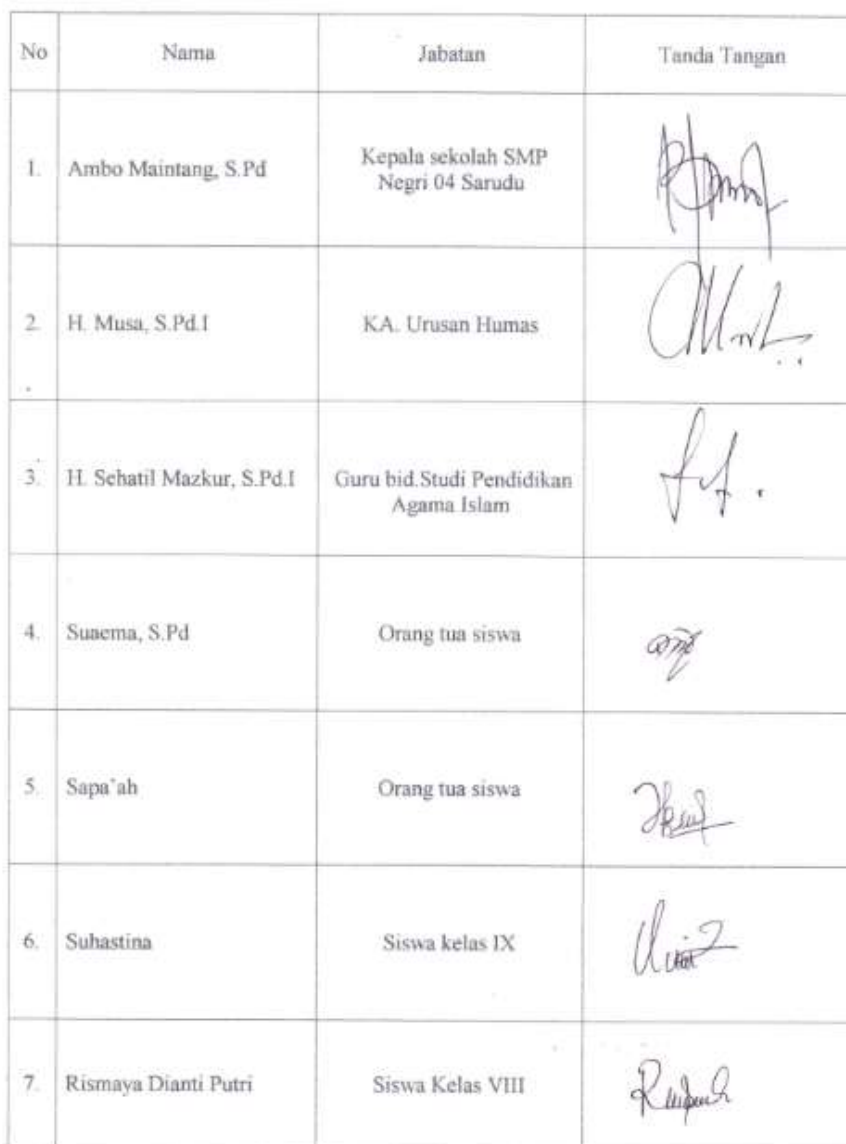 No Nama Jabatan Tanda Tangan
1. Ambo Maintang, S.Pd Kepala sekolah SMP
Negri 04 Sarudu
2. H. Musa, S.Pd.I KA. Urusan Humas
3. H. Sehatil Mazkur, S.Pd.I Guru bid.Studi Pendidikan
Agama Islam
4. Suaema, S.Pd Orang tua siswa
5. Sapa'ah Orang tua siswa
6. Suhastina Siswa kelas IX
7. Rismaya Dianti Putri Siswa Kelas VIII